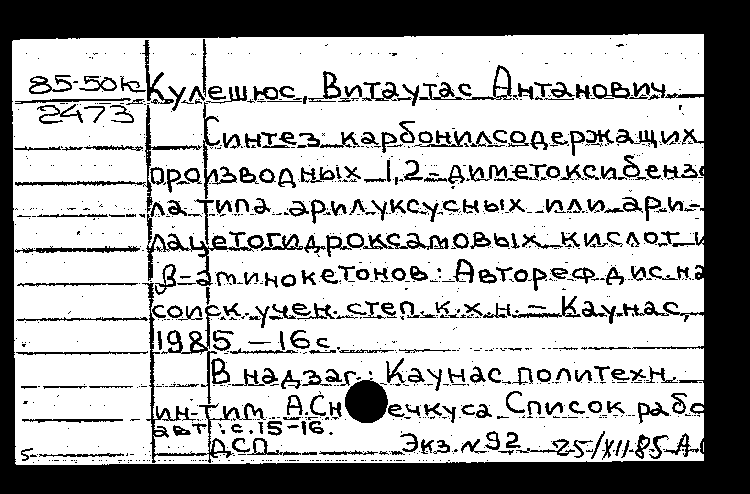 85-50к Кулешюс, Витаутас Антанович
2473
Синтез карбонилсодержащих
производных 1,2-диметоксибензо
ла типа арилуксусных или ари-
лацетогидроксамовых кислот и
β-аминокетонов: Автореф.дис.на
соиск.учен.степ.к.х.н. - Каунас,
1985 - 16с.
В надзаг.: Каунас политехн.
ин-т им А.Сн ечкуса Список рабо
авт.: с.15-16.
5 ДСП. Экз.№92. 25/XII85